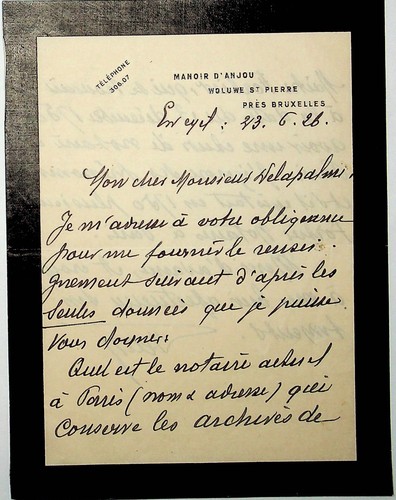 TÉLÉPHONE
306.07
MANOIR D'ANJOU
WOLUWE ST PIERRE
PRÈS BRUXELLES
En exil : 23. 6. 26.
Mon cher Monsieur Delapalme,
Je m'adresse à votre obligeance
pour me fournir le rensei-
gnement suivant d'après les
seules données que je puisse
vous donner:
Quel est le notaire actuel
à Paris (nom & adresse) qui
conserve les archives de